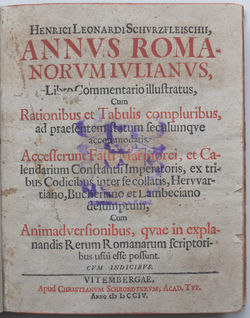 HENRICI LEONARDI SCHVRZFLEISCHII,
ANNVS ROMA-
NORVM IVLIANVS,
Libro Commentario illustratus,
Cum
Rationibus et Tabulis compluribus,
ad praesentem statum seculumqve
accommodatis.
Accesserunt Fasti Marmorei, et Ca-
lendarium Constantii Imperatoris, ex tri-
bus Codicibus inter se collatis, Hervvar-
tiano, Bucheriano et Lambeciano
desumptum,
Cum
Animadversionibus, qvae in expla-
nandis Rerum Romanarum scriptori-
bus usui esse possunt.
CVM INDICIBVS.
VITEMBERGAE,
Apud CHRISTIANVM SCHROEDTERVM, ACAD. TYP.
ANNO